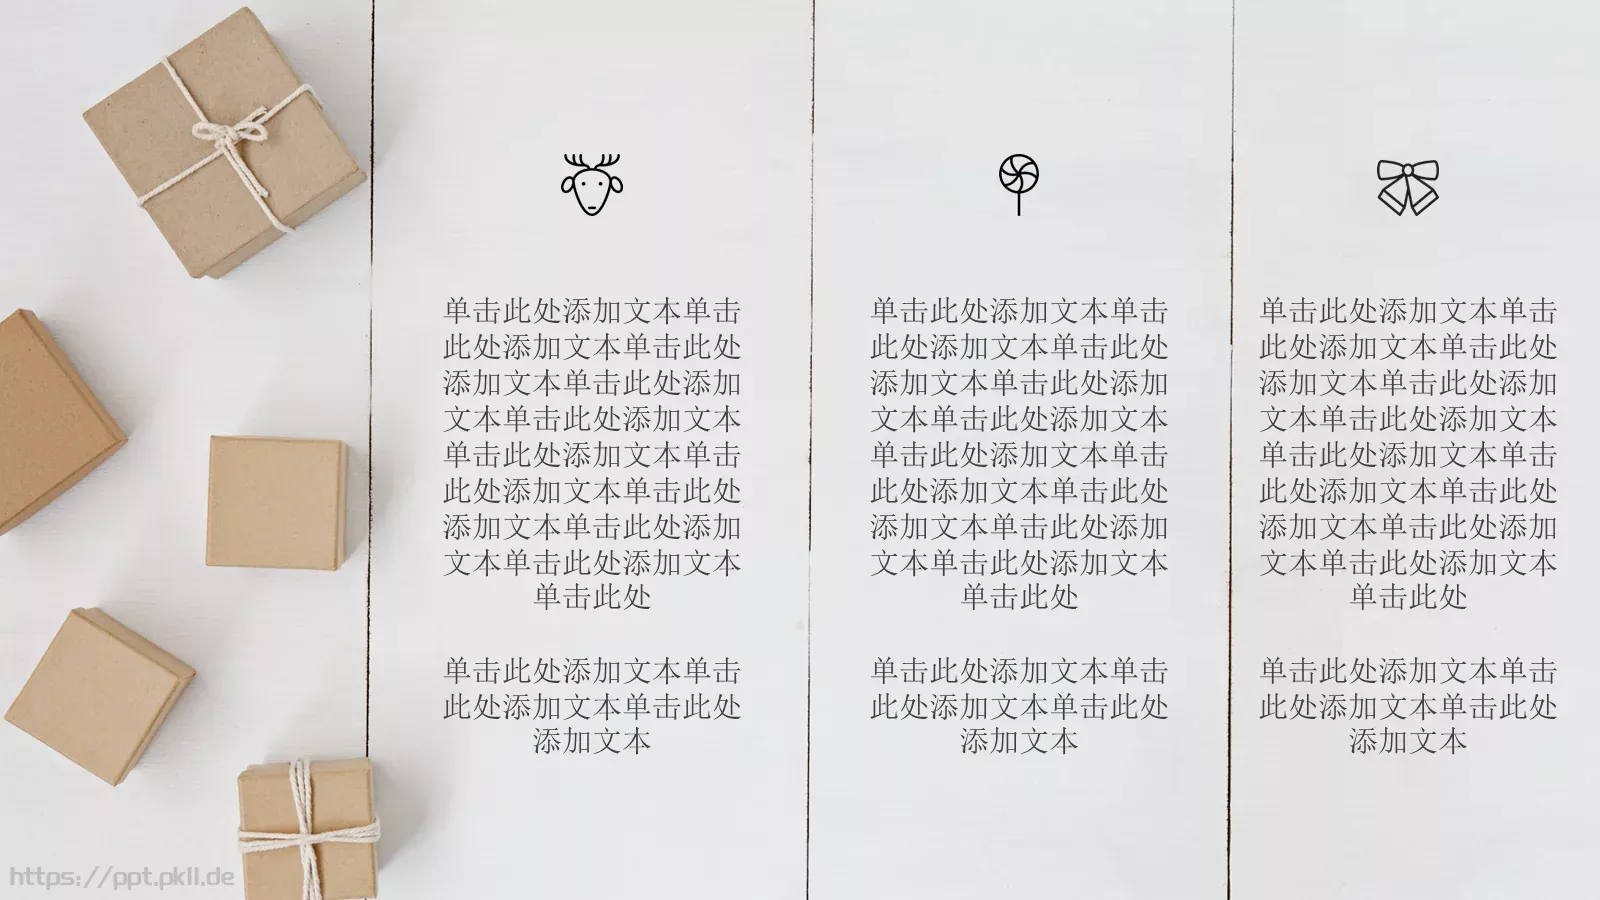 单击此处添加文本单击
此处添加文本单击此处
添加文本单击此处添加
文本单击此处添加文本
单击此处添加文本单击
此处添加文本单击此处
添加文本单击此处添加
文本单击此处添加文本
单击此处
单击此处添加文本单击
此处添加文本单击此处
添加文本
单击此处添加文本单击
此处添加文本单击此处
添加文本单击此处添加
文本单击此处添加文本
单击此处添加文本单击
此处添加文本单击此处
添加文本单击此处添加
文本单击此处添加文本
单击此处
单击此处添加文本单击
此处添加文本单击此处
添加文本
单击此处添加文本单击
此处添加文本单击此处
添加文本单击此处添加
文本单击此处添加文本
单击此处添加文本单击
此处添加文本单击此处
添加文本单击此处添加
文本单击此处添加文本
单击此处
单击此处添加文本单击
此处添加文本单击此处
添加文本
https://ppt.pkll.de